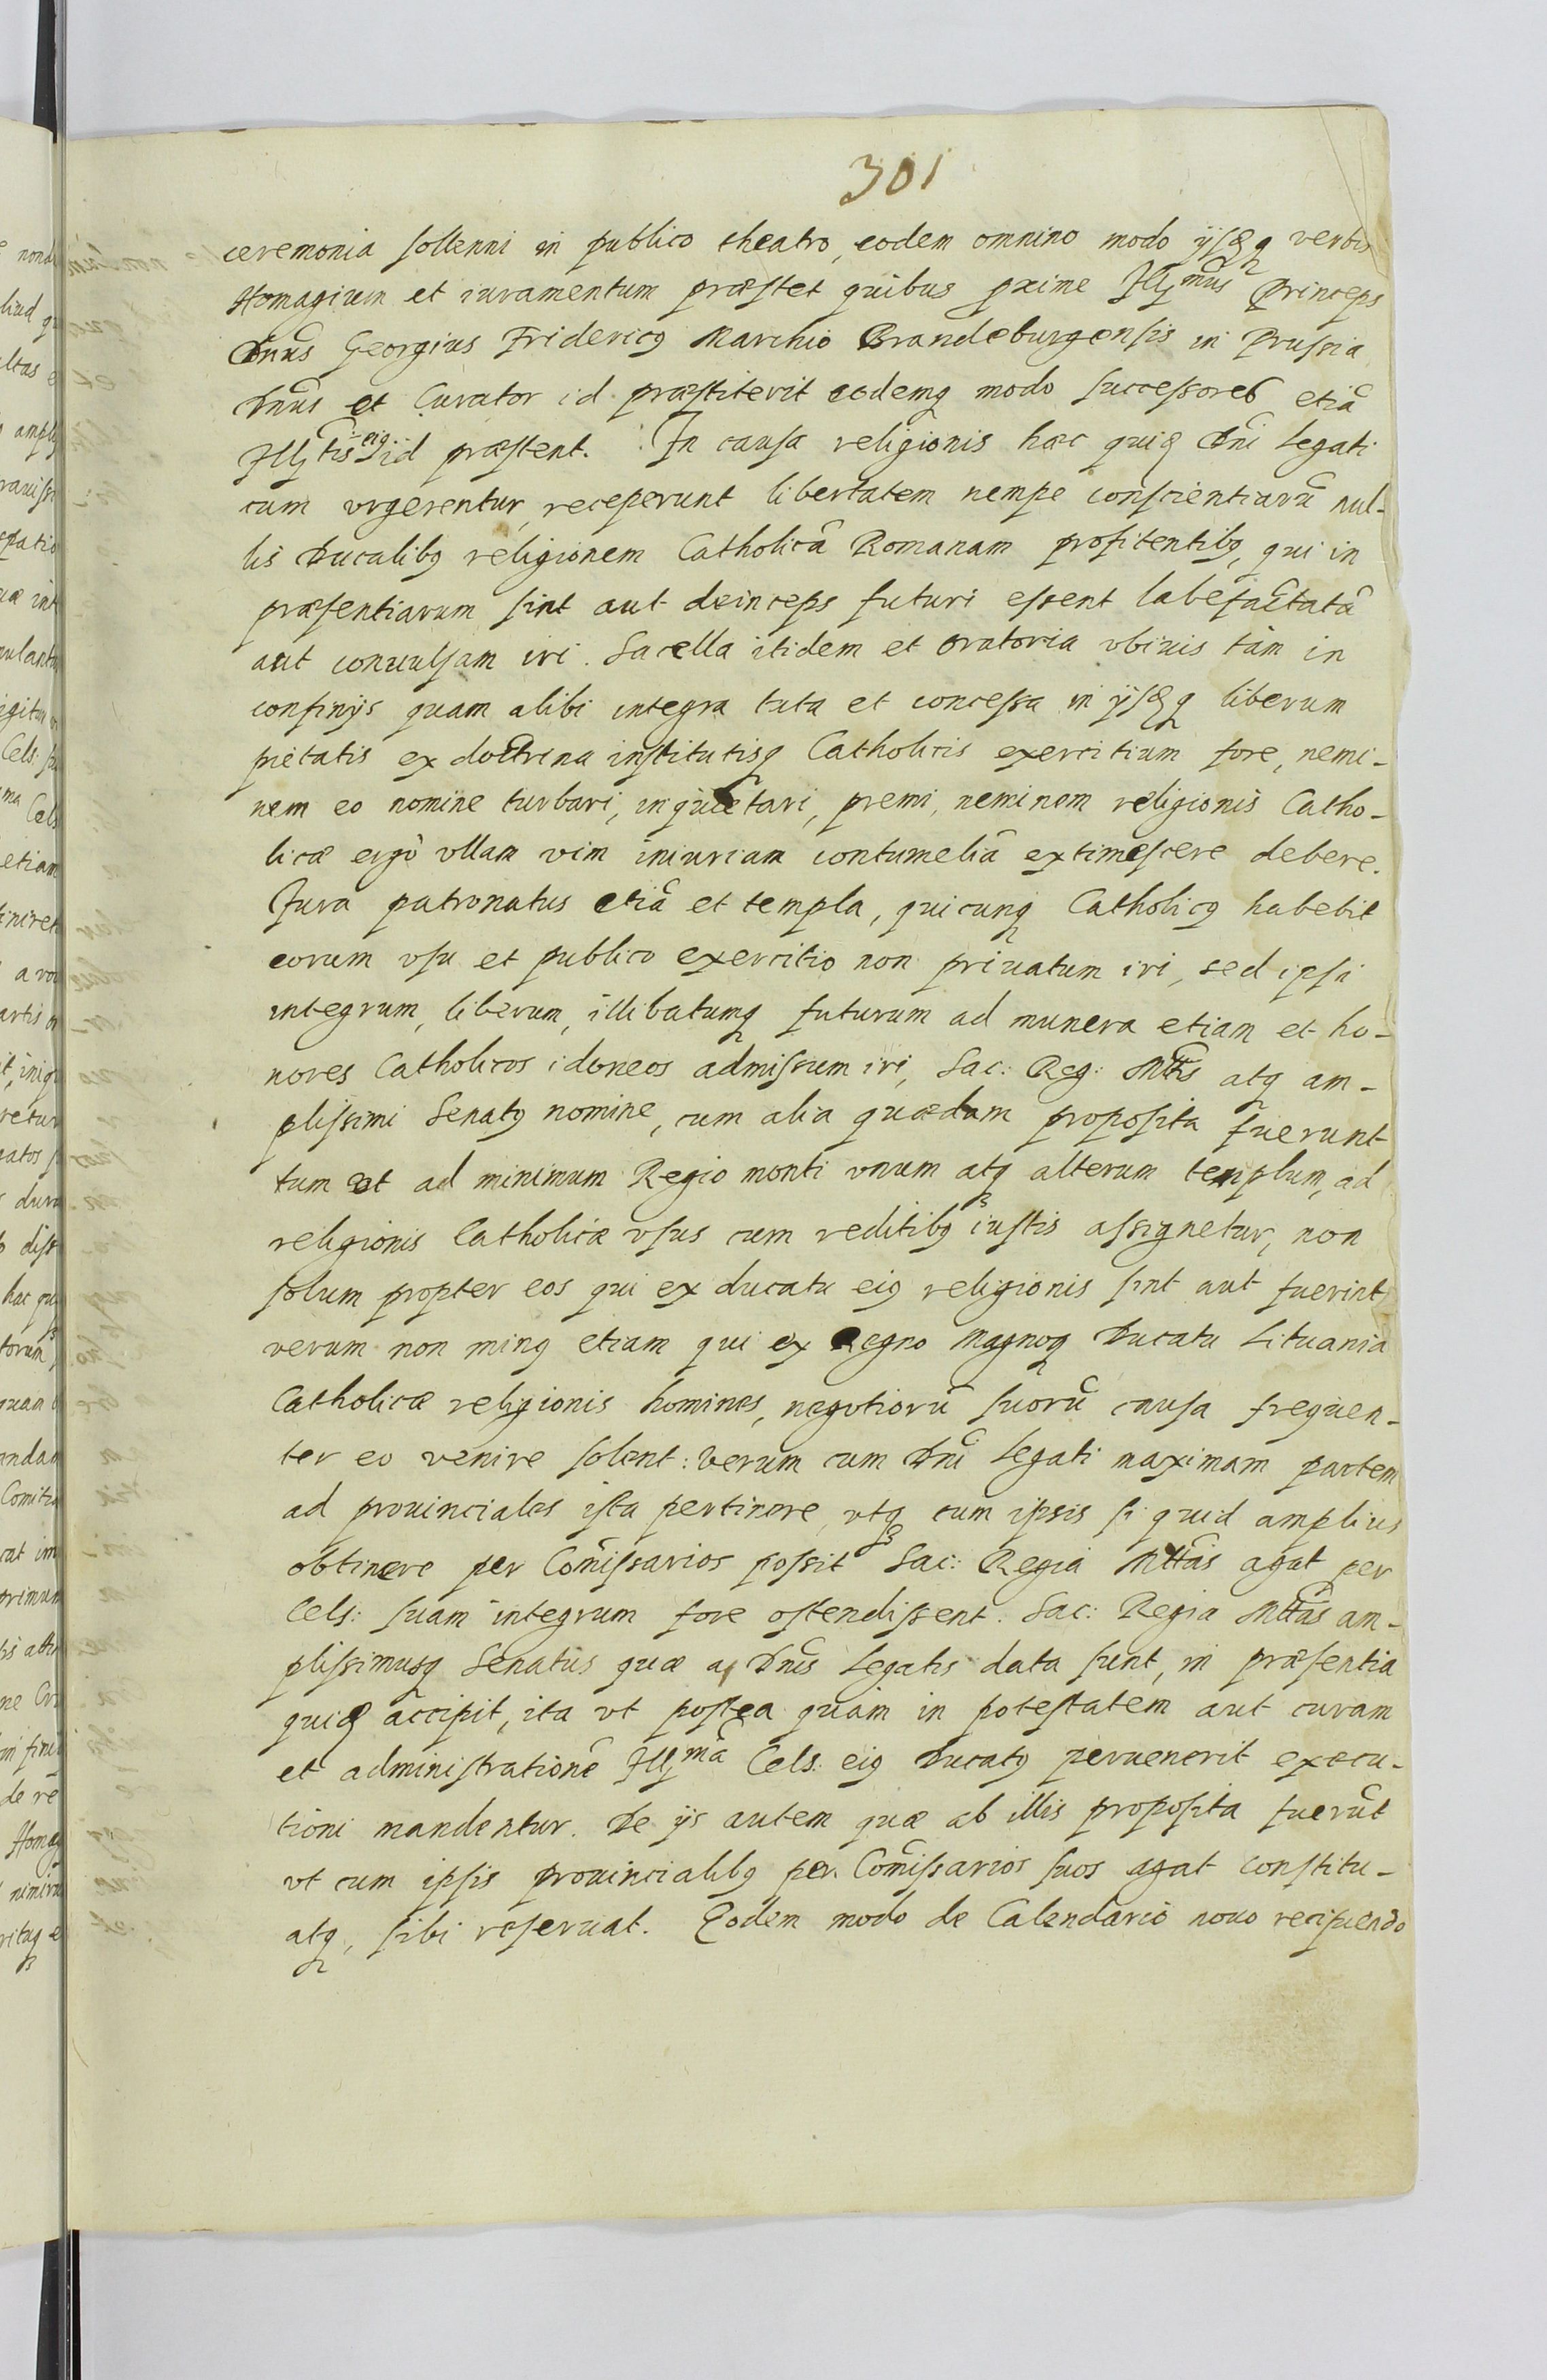 301
ceremonia sollenni in publico theatro, eodem omnino modo ijsdẽq verbis
Homagium et iuramentum præstet quibus pxime Illꝫmus Princeps
Dnũs Georgius Fridericꝰ Marchio Brandeburgensis in Prussia
Dnũs et Curator id præstiterit eodemq modo successores etiã
Illtis eiꝰ id præstent. In causa religionis hæc quidẽ Dnĩ Legati
cum vrgerentur, receperunt libertatem nempe conscientiarũ nul-
lis Ducalibꝰ religionem Catholicã Romanam profitentibꝰ, qui in
præsentiarum sint aut deinceps futuri essent labefactatã
aut conuulsam iri. Sacella itidem et oratoria vbiuis tàm in
confinijs quam alibi integra tuta et concessa in ijsdẽq liberum
pietatis ex doctrina institutisq Catholicis exercitium fore, nemi-
nem eo nomine turbari, inquietari, premi, neminem religionis Catho-
licæ ergò vllam vim iniuriam contumeliã extimescere debere.
Jura patronatus etiã et templa, quicunq Catholicꝰ habebit
eorum vsu et publico exercitio non priuatum iri, sed ipsi
integrum, liberum, illibatumq futurum ad munera etiam et ho-
nores Catholicos idoneos admissum iri, Sac: Reg: Mttis atq am-
plissimi Senatꝰ nomine, cum alia quædam proposita fuerunt
tum ut ad minimum Regio monti vnum atq alterum templum, ad
religionis Catholicæ vsus cum reditibꝰ iustis assignetur, non
solum propter eos qui ex ducatu eiꝰ religionis sint aut fuerint,
verum non minꝰ etiam qui ex Regno Magnoq Ducatu Lituania
Catholicæ religionis homines, negotiorũ suorũ causa frequen-
ter eo venire solent: verum cum Dnĩ Legati maximam partem
ad prouinciales ista pertinere, vtq cum ipsis si quid amplius
obtinere per Comissarios possit Sac: Regia Mttas agat per
Cels: suam integrum fore ostendissent. Sac: Regia Mttas am-
plissimusq Senatus quæ a Dnis Legatis data sunt, in præsentia
quidẽ accipit, ita vt postea quàm in potestatem aut curam
et administrationẽ Illmã Cels: eiꝰ Ducatꝰ peruenerit execu-
tioni mandentur. De ijs autem quæ ab illis proposita fuerũt
vt cum ipsis prouincialibꝰ per Comissarios suos agat constitu-
atq, sibi reseruat. Eodem modo de Calendario nouo recipiendo